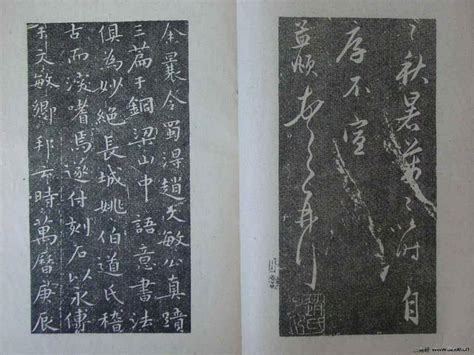 秋暑
自
序不宣
頓首
余曩令蜀淂趙文敏公真蹟
三篇于銅梁山中語意書法
俱為妙絕長城姚伯道氏稽
古而深嗜焉遂付刻石以永傳
文敏鄉邦云時萬曆庚辰